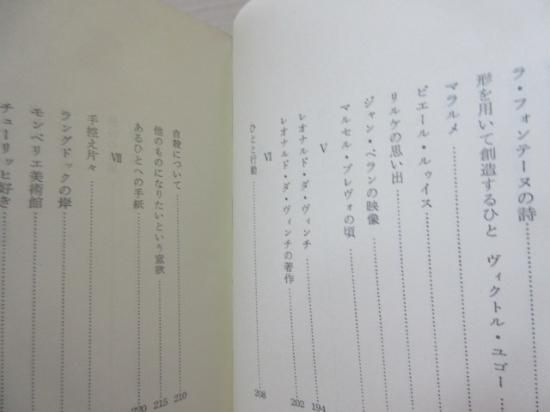 ラ・フォンテーヌの詩
形を用いて創造するひと ヴィクトル・ユゴー
マラルメ
ピエール・ルゥイス
リルケの思い出
ジャン・ペランの映像
マルセル・プレヴォの頃
V
レオナルド・ダ・ヴィンチ 194
レオナルド・ダ・ヴィンチの著作 202
ひとと行動 208
VI
自殺について 210
他のものになりたいという意欲 215
あるひとへの手紙 220
VII
手控え片々
ラングドックの岸
モンペリエ美術館
チューリッヒ好き